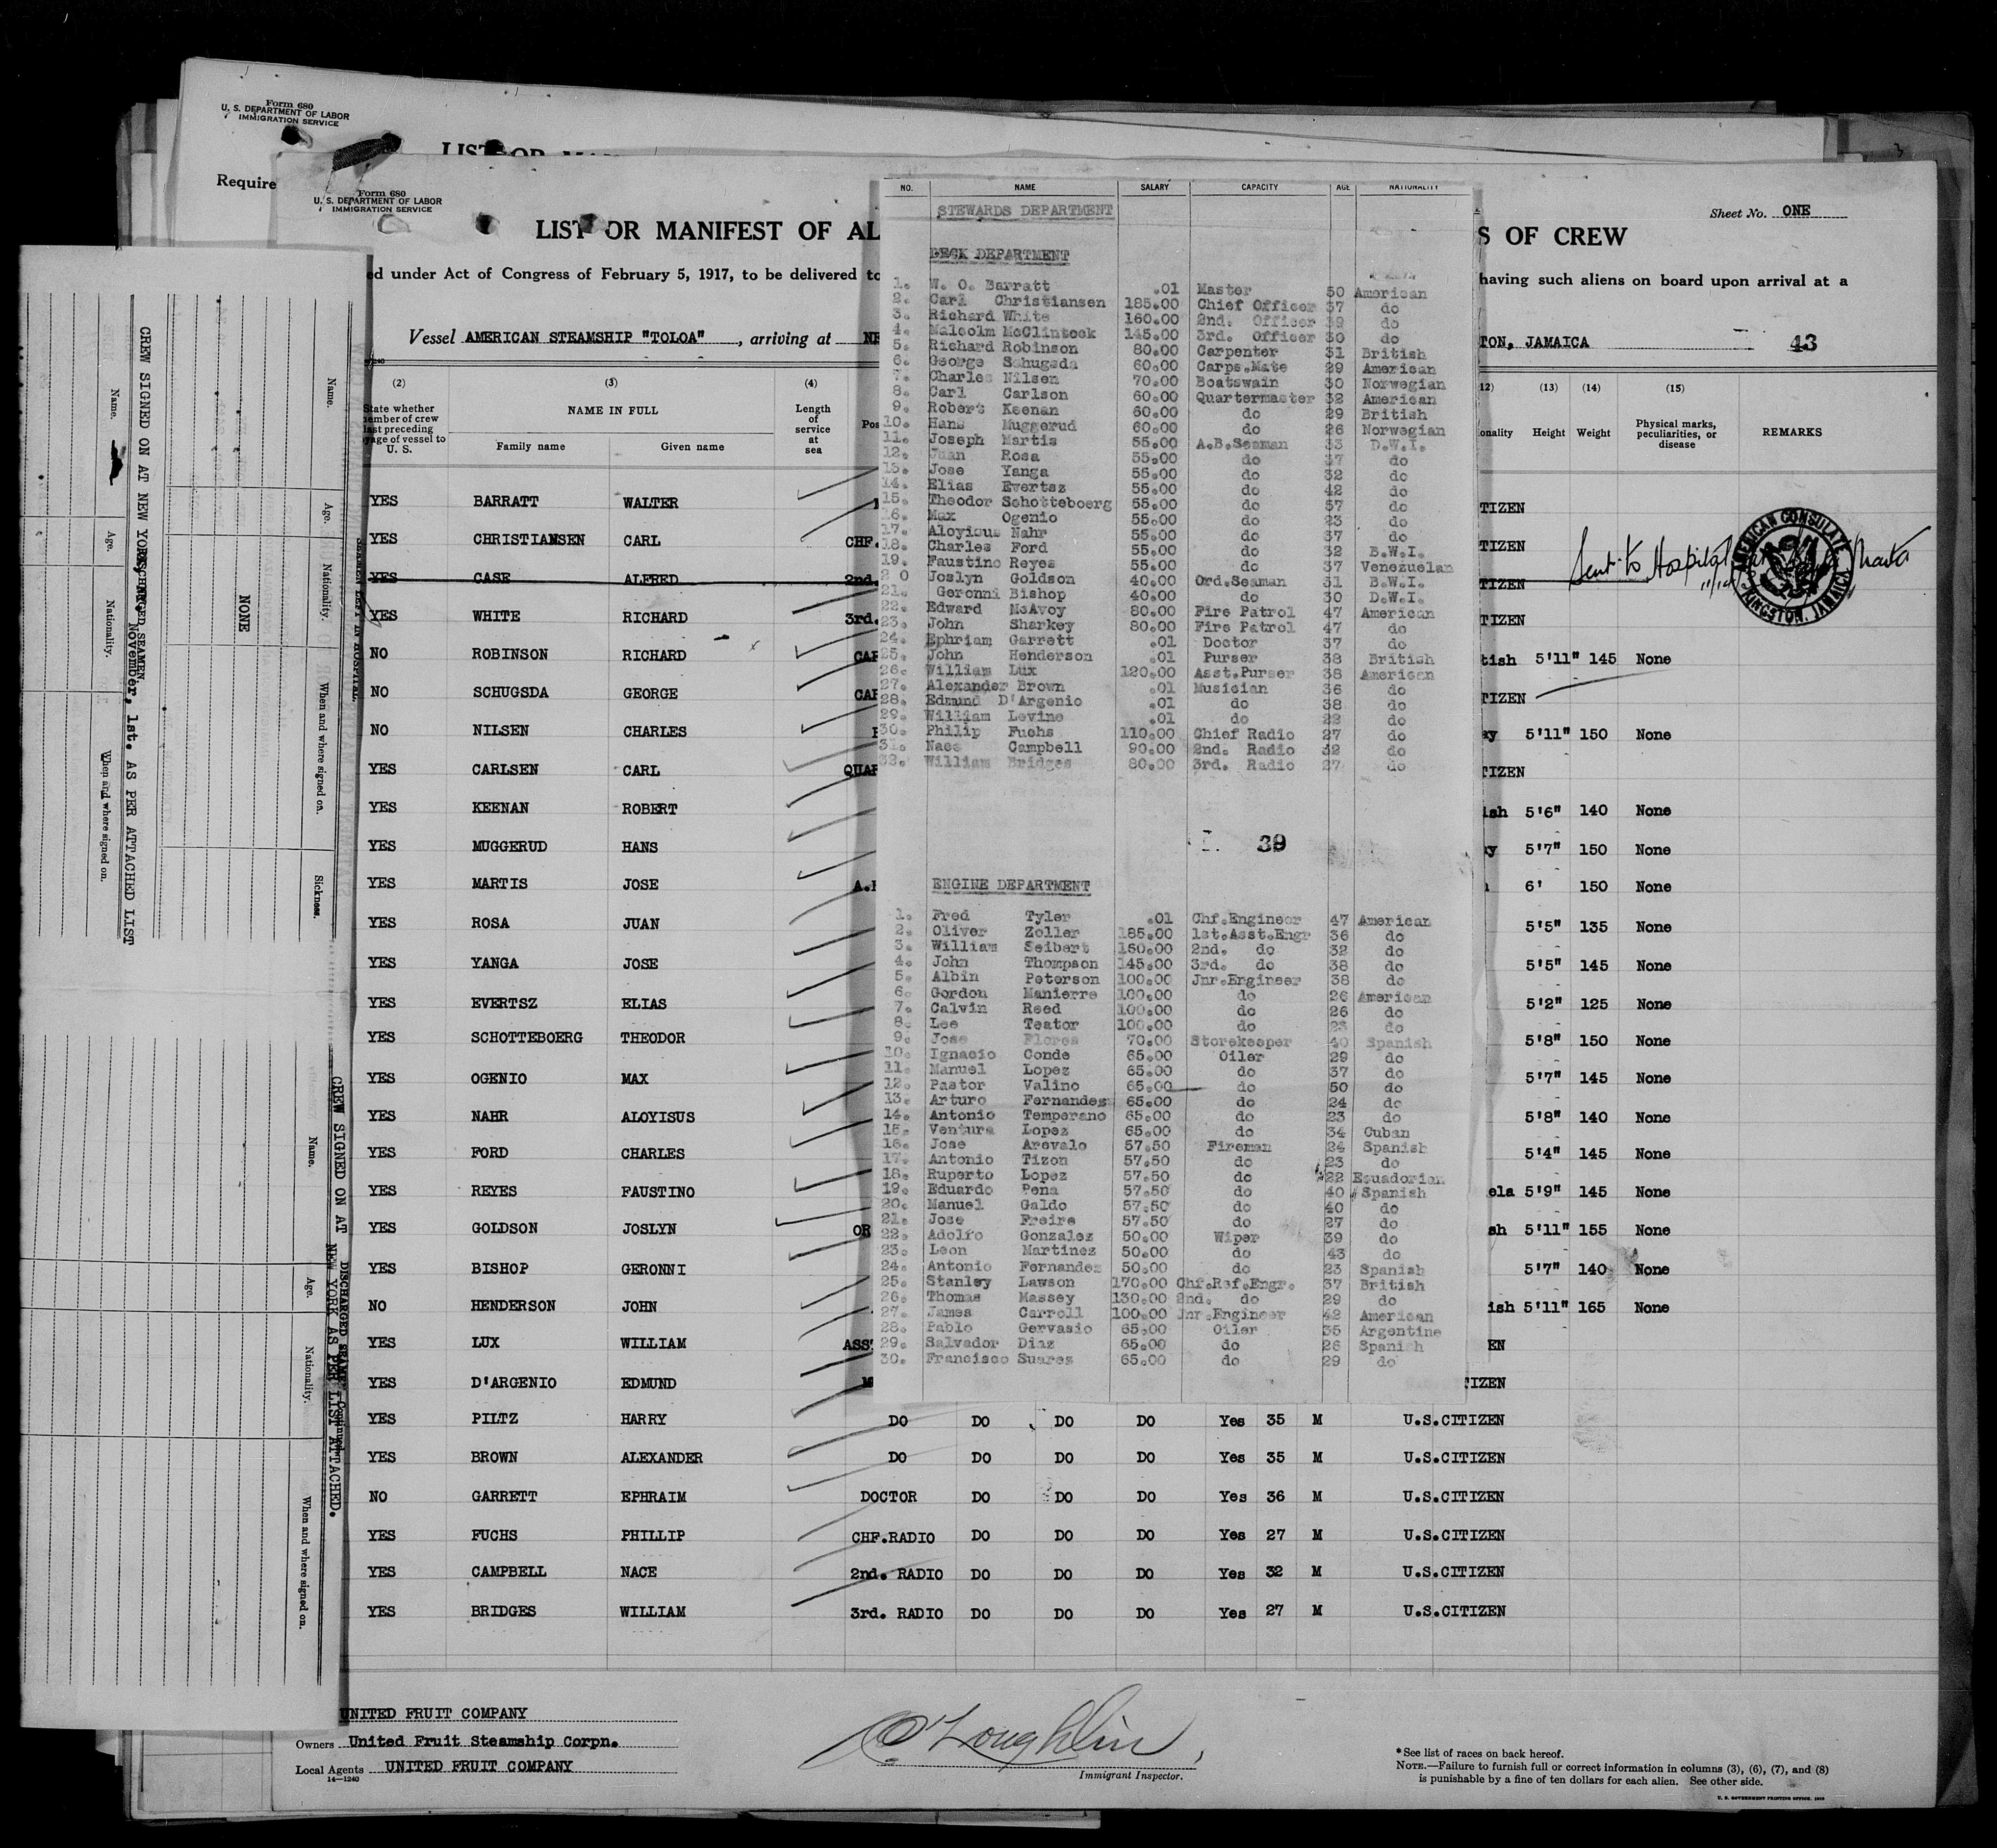 Form 680
U. S. DEPARTMENT OF LABOR
IMMIGRATION SERVICE
Require
Form 680
U. S. DEPARTMENT OF LABOR
IMMIGRATION SERVICE
Sheet No. ONE
LIST OR MANIFEST OF AL
S OF CREW
ed under Act of Congress of February 5, 1917, to be delivered to
having such aliens on board upon arrival at a
Vessel AMERICAN STEAMSHIP "TOLOA", arriving at
TON, JAMAICA 43
(2) (3) (4)
State whether
member of crew
last preceding
voyage of vessel to
U. S.
NAME IN FULL
Family name Given name
Length
of
service
at
sea
Pos
12) (13) (14) (15)
onality Height Weight
Physical marks,
peculiarities, or
disease
REMARKS
YES BARRATT WALTER TIZEN
YES CHRISTIANSEN CARL CHF. TIZEN
YES CASE ALFRED 2nd. TIZEN
Sent to Hospital
AMERICAN CONSULATE
KINGSTON, JAMAICA
YES WHITE RICHARD 3rd. TIZEN
NO ROBINSON RICHARD CAR tish 5'11" 145 None
NO SCHUGSDA GEORGE CAR TIZEN
NO NILSEN CHARLES ay 5'11" 150 None
YES CARLSEN CARL QUAR TIZEN
YES KEENAN ROBERT ish 5'6" 140 None
YES MUGGERUD HANS ay 5'7" 150 None
YES MARTIS JOSE A.B 6' 150 None
YES ROSA JUAN 5'5" 135 None
YES YANGA JOSE 5'5" 145 None
YES EVERTSZ ELIAS 5'2" 125 None
YES SCHOTTEBOERG THEODOR 5'8" 150 None
YES OGENIO MAX 5'7" 145 None
YES NAHR ALOYISUS 5'8" 140 None
YES FORD CHARLES 5'4" 145 None
YES REYES FAUSTINO ela 5'9" 145 None
YES GOLDSON JOSLYN OR sh 5'11" 155 None
YES BISHOP GERONNI 5'7" 140 None
NO HENDERSON JOHN ish 5'11" 165 None
YES LUX WILLIAM ASS' EN
YES D'ARGENIO EDMUND M TIZEN
YES PILTZ HARRY DO DO DO DO Yes 35 M U.S.CITIZEN
YES BROWN ALEXANDER DO DO DO DO Yes 35 M U.S.CITIZEN
NO GARRETT EPHRAIM DOCTOR DO DO DO Yes 36 M U.S.CITIZEN
YES FUCHS PHILLIP CHF.RADIO DO DO DO Yes 27 M U.S.CITIZEN
YES CAMPBELL NACE 2nd. RADIO DO DO DO Yes 32 M U.S.CITIZEN
YES BRIDGES WILLIAM 3rd. RADIO DO DO DO Yes 27 M U.S.CITIZEN
UNITED FRUIT COMPANY
Owners United Fruit Steamship Corpn.
Local Agents UNITED FRUIT COMPANY
14—1240
O'Loughlin
Immigrant Inspector.
*See list of races on back hereof.
NOTE.—Failure to furnish full or correct information in columns (3), (6), (7), and (8)
is punishable by a fine of ten dollars for each alien. See other side.
U. S. GOVERNMENT PRINTING OFFICE
NO. NAME SALARY CAPACITY AGE NATIONALITY
STEWARDS DEPARTMENT
DECK DEPARTMENT
1. W. O. Barratt .01 Master 50 American
2. Carl Christiansen 185.00 Chief Officer 37 do
3. Richard White 160.00 2nd. Officer 39 do
4. Malcolm McClintock 145.00 3rd. Officer 30 do
5. Richard Robinson 80.00 Carpenter 31 British
6. George Schugsda 60.00 Carps.Mate 29 American
7. Charles Nilsen 70.00 Boatswain 30 Norwegian
8. Carl Carlson 60.00 Quartermaster 32 American
9. Robert Keenan 60.00 do 29 British
10. Hans Muggerud 60.00 do 26 Norwegian
11. Joseph Martis 55.00 A.B.Seaman 33 D.W.I.
12. Juan Rosa 55.00 do 37 do
13. Jose Yanga 55.00 do 32 do
14. Elias Evertsz 55.00 do 42 do
15. Theodor Schotteboerg 55.00 do 57 do
16. Max Ogenio 55.00 do 23 do
17. Aloyicus Nahr 55.00 do 37 do
18. Charles Ford 55.00 do 32 B.W.I.
19. Faustino Reyes 55.00 do 37 Venezuelan
20 Joslyn Goldson 40.00 Ord.Seaman 31 B.W.I.
21. Geronni Bishop 40.00 do 30 D.W.I.
22. Edward McAvoy 80.00 Fire Patrol 47 American
23. John Sharkey 80.00 Fire Patrol 47 do
24. Ephriam Garrett .01 Doctor 37 do
25. John Henderson .01 Purser 38 British
26. William Lux 120.00 Asst.Purser 38 American
27. Alexander Brown .01 Musician 36 do
28. Edmund D'Argenio .01 do 38 do
29. William Levine .01 do 22 do
30. Philip Fuchs 110.00 Chief Radio 27 do
31. Naes Campbell 90.00 2nd. Radio 32 do
32. William Bridges 80.00 3rd. Radio 27 do
39
ENGINE DEPARTMENT
1. Fred Tyler .01 Chf.Engineer 47 American
2. Oliver Zoller 185.00 1st.Asst.Engr 36 do
3. William Seibert 160.00 2nd. do 32 do
4. John Thompson 145.00 3rd. do 38 do
5. Albin Peterson 100.00 Jnr.Engineer 38 do
6. Gordon Manierre 100.00 do 26 American
7. Calvin Reed 100.00 do 26 do
8. Lee Teator 100.00 do 23 do
9. Jose Flores 70.00 Storekeeper 40 Spanish
10. Ignacio Conde 65.00 Oiler 29 do
11. Manuel Lopez 65.00 do 37 do
12. Pastor Valino 65.00 do 50 do
13. Arturo Fernandes 65.00 do 24 do
14. Antonio Temperano 65.00 do 23 do
15. Ventura Lopez 65.00 do 34 Cuban
16. Jose Arevalo 57.50 Fireman 24 Spanish
17. Antonio Tizon 57.50 do 23 do
18. Ruperto Lopez 57.50 do 22 Ecuadorian
19. Eduardo Pena 57.50 do 40 Spanish
20. Manuel Galdo 57.50 do 40 do
21. Jose Freire 57.50 do 27 do
22. Adolfo Gonzalez 50.00 Wiper 39 do
23. Leon Martinez 50.00 do 43 do
24. Antonio Fernandez 50.00 do 23 Spanish
25. Stanley Lawson 170.00 Chf.Ref.Engr. 37 British
26. Thomas Massey 130.00 2nd. do 29 do
27. James Carroll 100.00 Jnr.Engineer 42 American
28. Pablo Gervasio 65.00 Oiler 35 Argentine
29. Salvador Diaz 65.00 do 26 Spanish
30. Francisco Suarez 65.00 do 29 do
CREW SIGNED ON AT NEW YORK, November, 1st. AS PER ATTACHED LIST
DISCHARGED SEAMEN.
Name. Age. Nationality. When and where signed on.
SEAMEN LEFT IN HOSPITAL
Name. Age. Nationality. When and where signed on. Sickness.
NONE
CREW SIGNED ON AT NEW YORK AS PER LIST ATTACHED.
DISCHARGED SEAMEN—Continued
Name. Age. Nationality. When and where signed on.